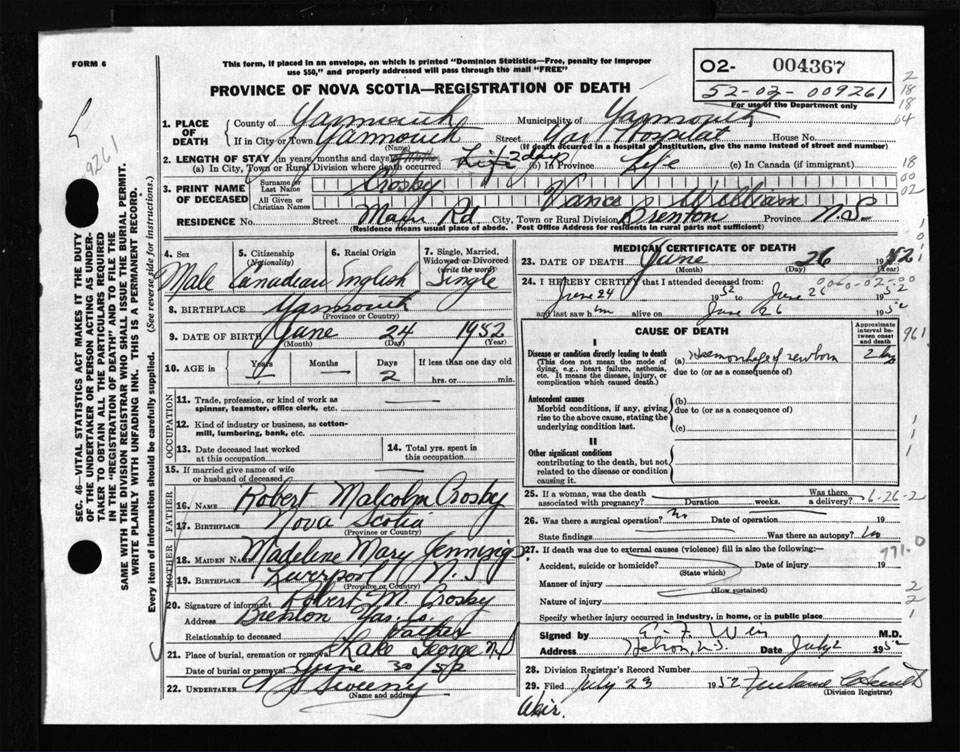 FORM 6
This form, if placed in an envelope, on which is printed "Dominion Statistics—Free, penalty for improper
use $50," and properly addressed will pass through the mail "FREE"
PROVINCE OF NOVA SCOTIA—REGISTRATION OF DEATH
O2- 004367
52-02-009261
For use of the Department only
2
18
18
64
9261
1. PLACE OF DEATH
County of Yarmouth Municipality of Yarmouth
If in City or Town Yarmouth Street Yar Hospital House No.
(Name) (If death occurred in a hospital or institution, give the name instead of street and number)
2. LENGTH OF STAY (in years, months and days)
(a) In City, Town or Rural Division where death occurred Life 2 days (b) in Province Life (c) In Canada (if immigrant)
18
00
02
3. PRINT NAME OF DECEASED
Surname or Last Name Crosby
All Given or Christian Names Vance William
RESIDENCE No. Street Main Rd. City, Town or Rural Division Brenton Province N.S.
(Residence means usual place of abode. Post Office Address for residents in rural parts not sufficient)
4. Sex Male
5. Citizenship (Nationality) Canadian
6. Racial Origin English
7. Single, Married, Widowed or Divorced (write the word) Single
8. BIRTHPLACE Yarmouth
(Province or Country)
9. DATE OF BIRTH June 24 1952
(Month) (Day) (Year)
10. AGE in Years Months Days 2 If less than one day old hrs. or min.
OCCUPATION
11. Trade, profession, or kind of work as
spinner, teamster, office clerk, etc.
12. Kind of industry or business, as cotton-
mill, lumbering, bank, etc.
13. Date deceased last worked at this occupation
14. Total yrs. spent in this occupation
15. If married give name of wife
or husband of deceased
FATHER
16. NAME Robert Malcolm Crosby
17. BIRTHPLACE Nova Scotia
(Province or Country)
MOTHER
18. MAIDEN NAME Madeline Mary Jenning
19. BIRTHPLACE Liverpool N.S
(Province or Country)
20. Signature of informant Robert M. Crosby
Address Brenton Yar. Co.
Relationship to deceased Father
21. Place of burial, cremation or removal Lake George N.S
Date of burial or removal June 30/52
22. UNDERTAKER Sweeny
(Name and address)
MEDICAL CERTIFICATE OF DEATH
23. DATE OF DEATH June 26 1952
(Month) (Day) (Year)
24. I HEREBY CERTIFY that I attended deceased from:
June 24 1952 to June 26 1952
and last saw him alive on June 26 1952
CAUSE OF DEATH
Approximate interval between onset and death
961
I
Disease or condition directly leading to death
(This does not mean the mode of dying, e.g., heart failure, asthenia, etc. It means the disease, injury, or complication which caused death.)
(a) Haemorrhage of newborn
due to (or as a consequence of)
Antecedent causes
Morbid conditions, if any, giving rise to the above cause, stating the underlying condition last.
(b)
due to (or as a consequence of)
(c)
II
Other significant conditions
contributing to the death, but not related to the disease or condition causing it.
25. If a woman, was the death associated with pregnancy? Duration weeks. Was there a delivery? 6-26-2
26. Was there a surgical operation? No Date of operation 19
State findings Was there an autopsy? No
27. If death was due to external causes (violence) fill in also the following:— 771.0
Accident, suicide or homicide? Date of injury 19
(State which)
Manner of injury
(How sustained)
Nature of injury
Specify whether injury occurred in industry, in home, or in public place
2
2
1
Signed by Weir M.D.
Address Hebron N.S. Date July 2 1952
28. Division Registrar's Record Number
29. Filed July 29 1952
(Division Registrar)
Weir.
SEC. 46—VITAL STATISTICS ACT MAKES IT THE DUTY
OF THE UNDERTAKER OR PERSON ACTING AS UNDER-
TAKER TO OBTAIN ALL THE PARTICULARS REQUIRED
IN THE "REGISTRATION OF DEATH" AND TO FILE THE
SAME WITH THE DIVISION REGISTRAR WHO SHALL ISSUE THE BURIAL PERMIT.
WRITE PLAINLY WITH UNFADING INK. THIS IS A PERMANENT RECORD.
Every item of information should be carefully supplied. (See reverse side for instructions.)